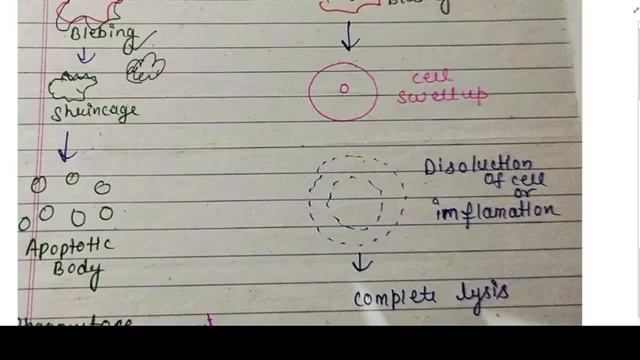 Blebing
Shrincage
Apoptotic
Body
cell
swellup
Disoluction
of cell
or
imflamation
complete lysis